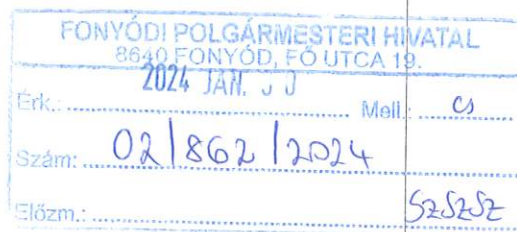 FONYÓDI POLGÁRMESTERI HIVATAL
8640 FONYÓD, FŐ UTCA 19.
2024 JAN.
Érk.: Mell.:
Szám: 02/862/2024
Előzm.: SZSZSZ